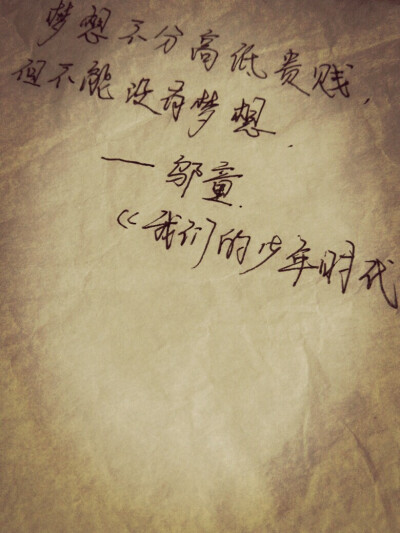 梦想不分高低贵贱,
但不能没有梦想.
——邬童.
《我们的少年时代